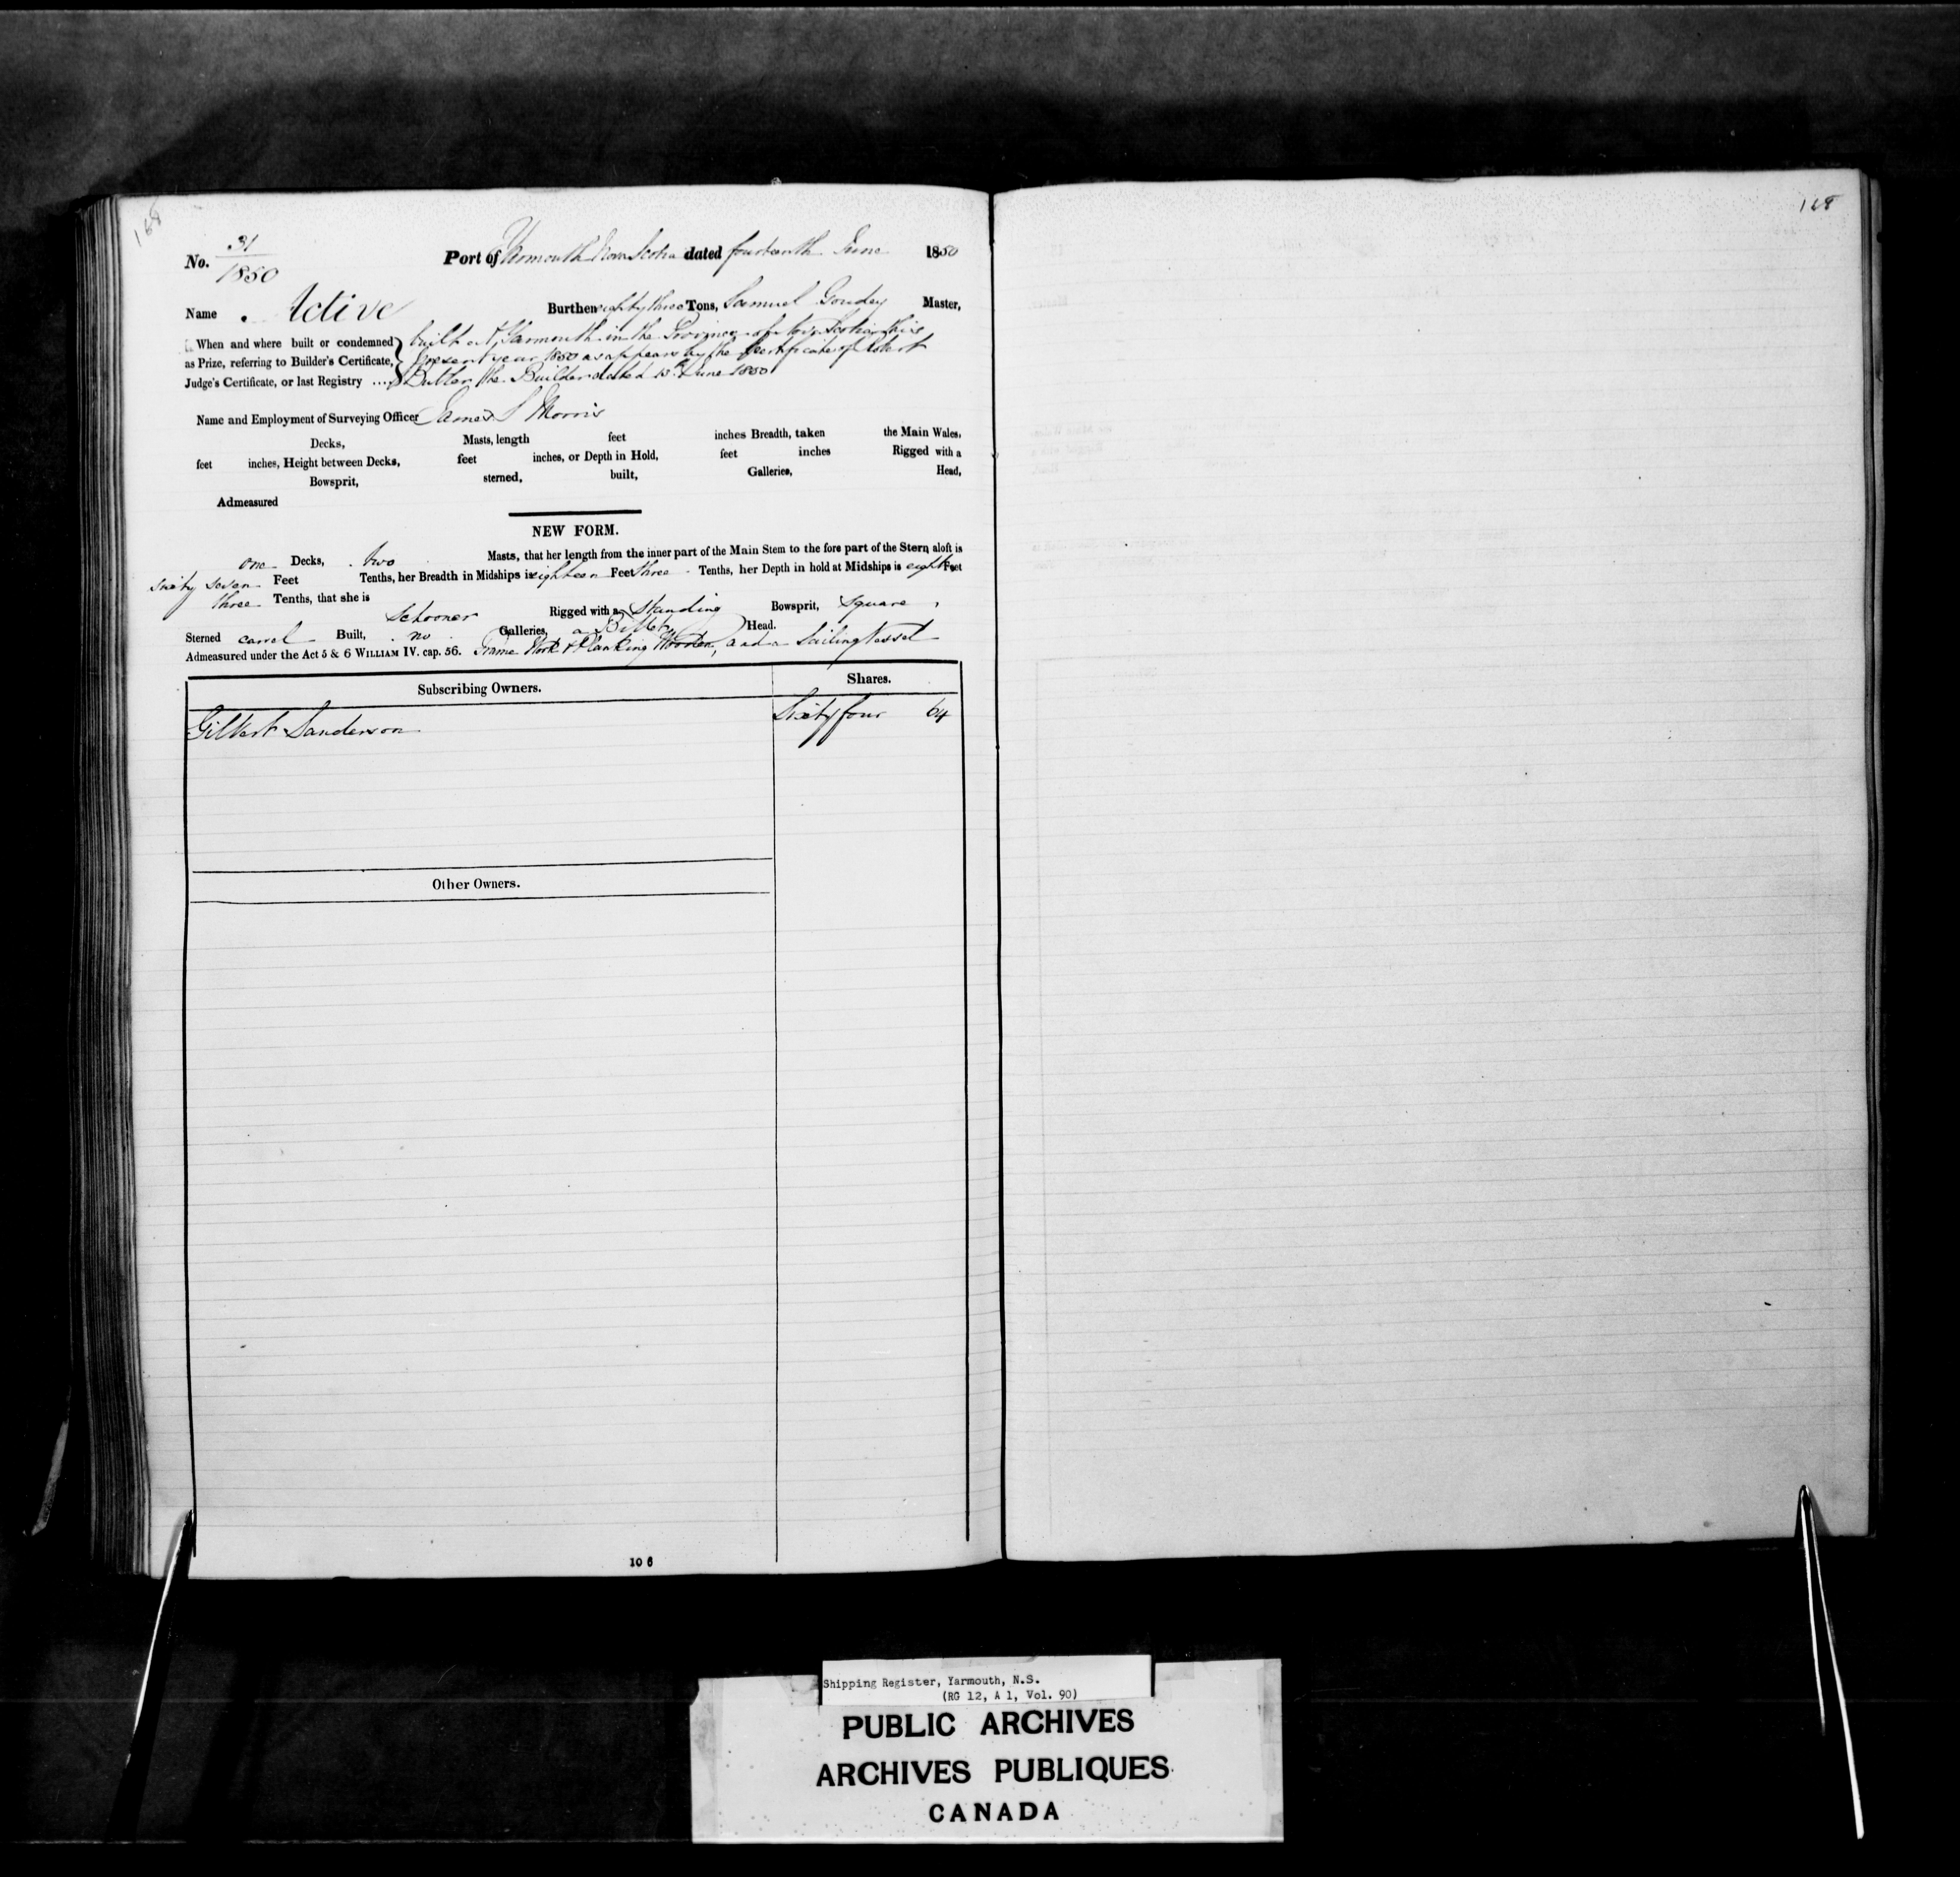 168
168
No. 31
1850
Port of Yarmouth Nova Scotia dated fourteenth June 1850
Name Active Burthen eighty three Tons, Samuel Goudey Master,
When and where built or condemned
as Prize, referring to Builder's Certificate,
Judge's Certificate, or last Registry ....
built at Yarmouth in the Province of Nova Scotia this
present year 1850 as appears by the Certificate of Robert
Butler the Builder dated 13th June 1850
Name and Employment of Surveying Officer James S Morris
Decks, Masts, length feet inches Breadth, taken the Main Wales,
feet inches, Height between Decks, feet inches, or Depth in Hold, feet inches Rigged with a
Bowsprit, sterned, built, Galleries, Head,
Admeasured
NEW FORM.
one Decks, two Masts, that her length from the inner part of the Main Stem to the fore part of the Stern aloft is
sixty seven Feet Tenths, her Breadth in Midships is eighteen Feet three Tenths, her Depth in hold at Midships is eight Feet
three Tenths, that she is Schooner Rigged with a Standing Bowsprit, Square
Sterned carvel Built, no Galleries, a Billet Head.
Admeasured under the Act 5 & 6 WILLIAM IV. cap. 56. Frame Work & Planking Wooden, and a Sailing Vessel
Subscribing Owners. Shares.
Gilbert Sanderson Sixty four 64
Other Owners.
10 6
Shipping Register, Yarmouth, N.S.
(RG 12, A 1, Vol. 90)
PUBLIC ARCHIVES
ARCHIVES PUBLIQUES
CANADA